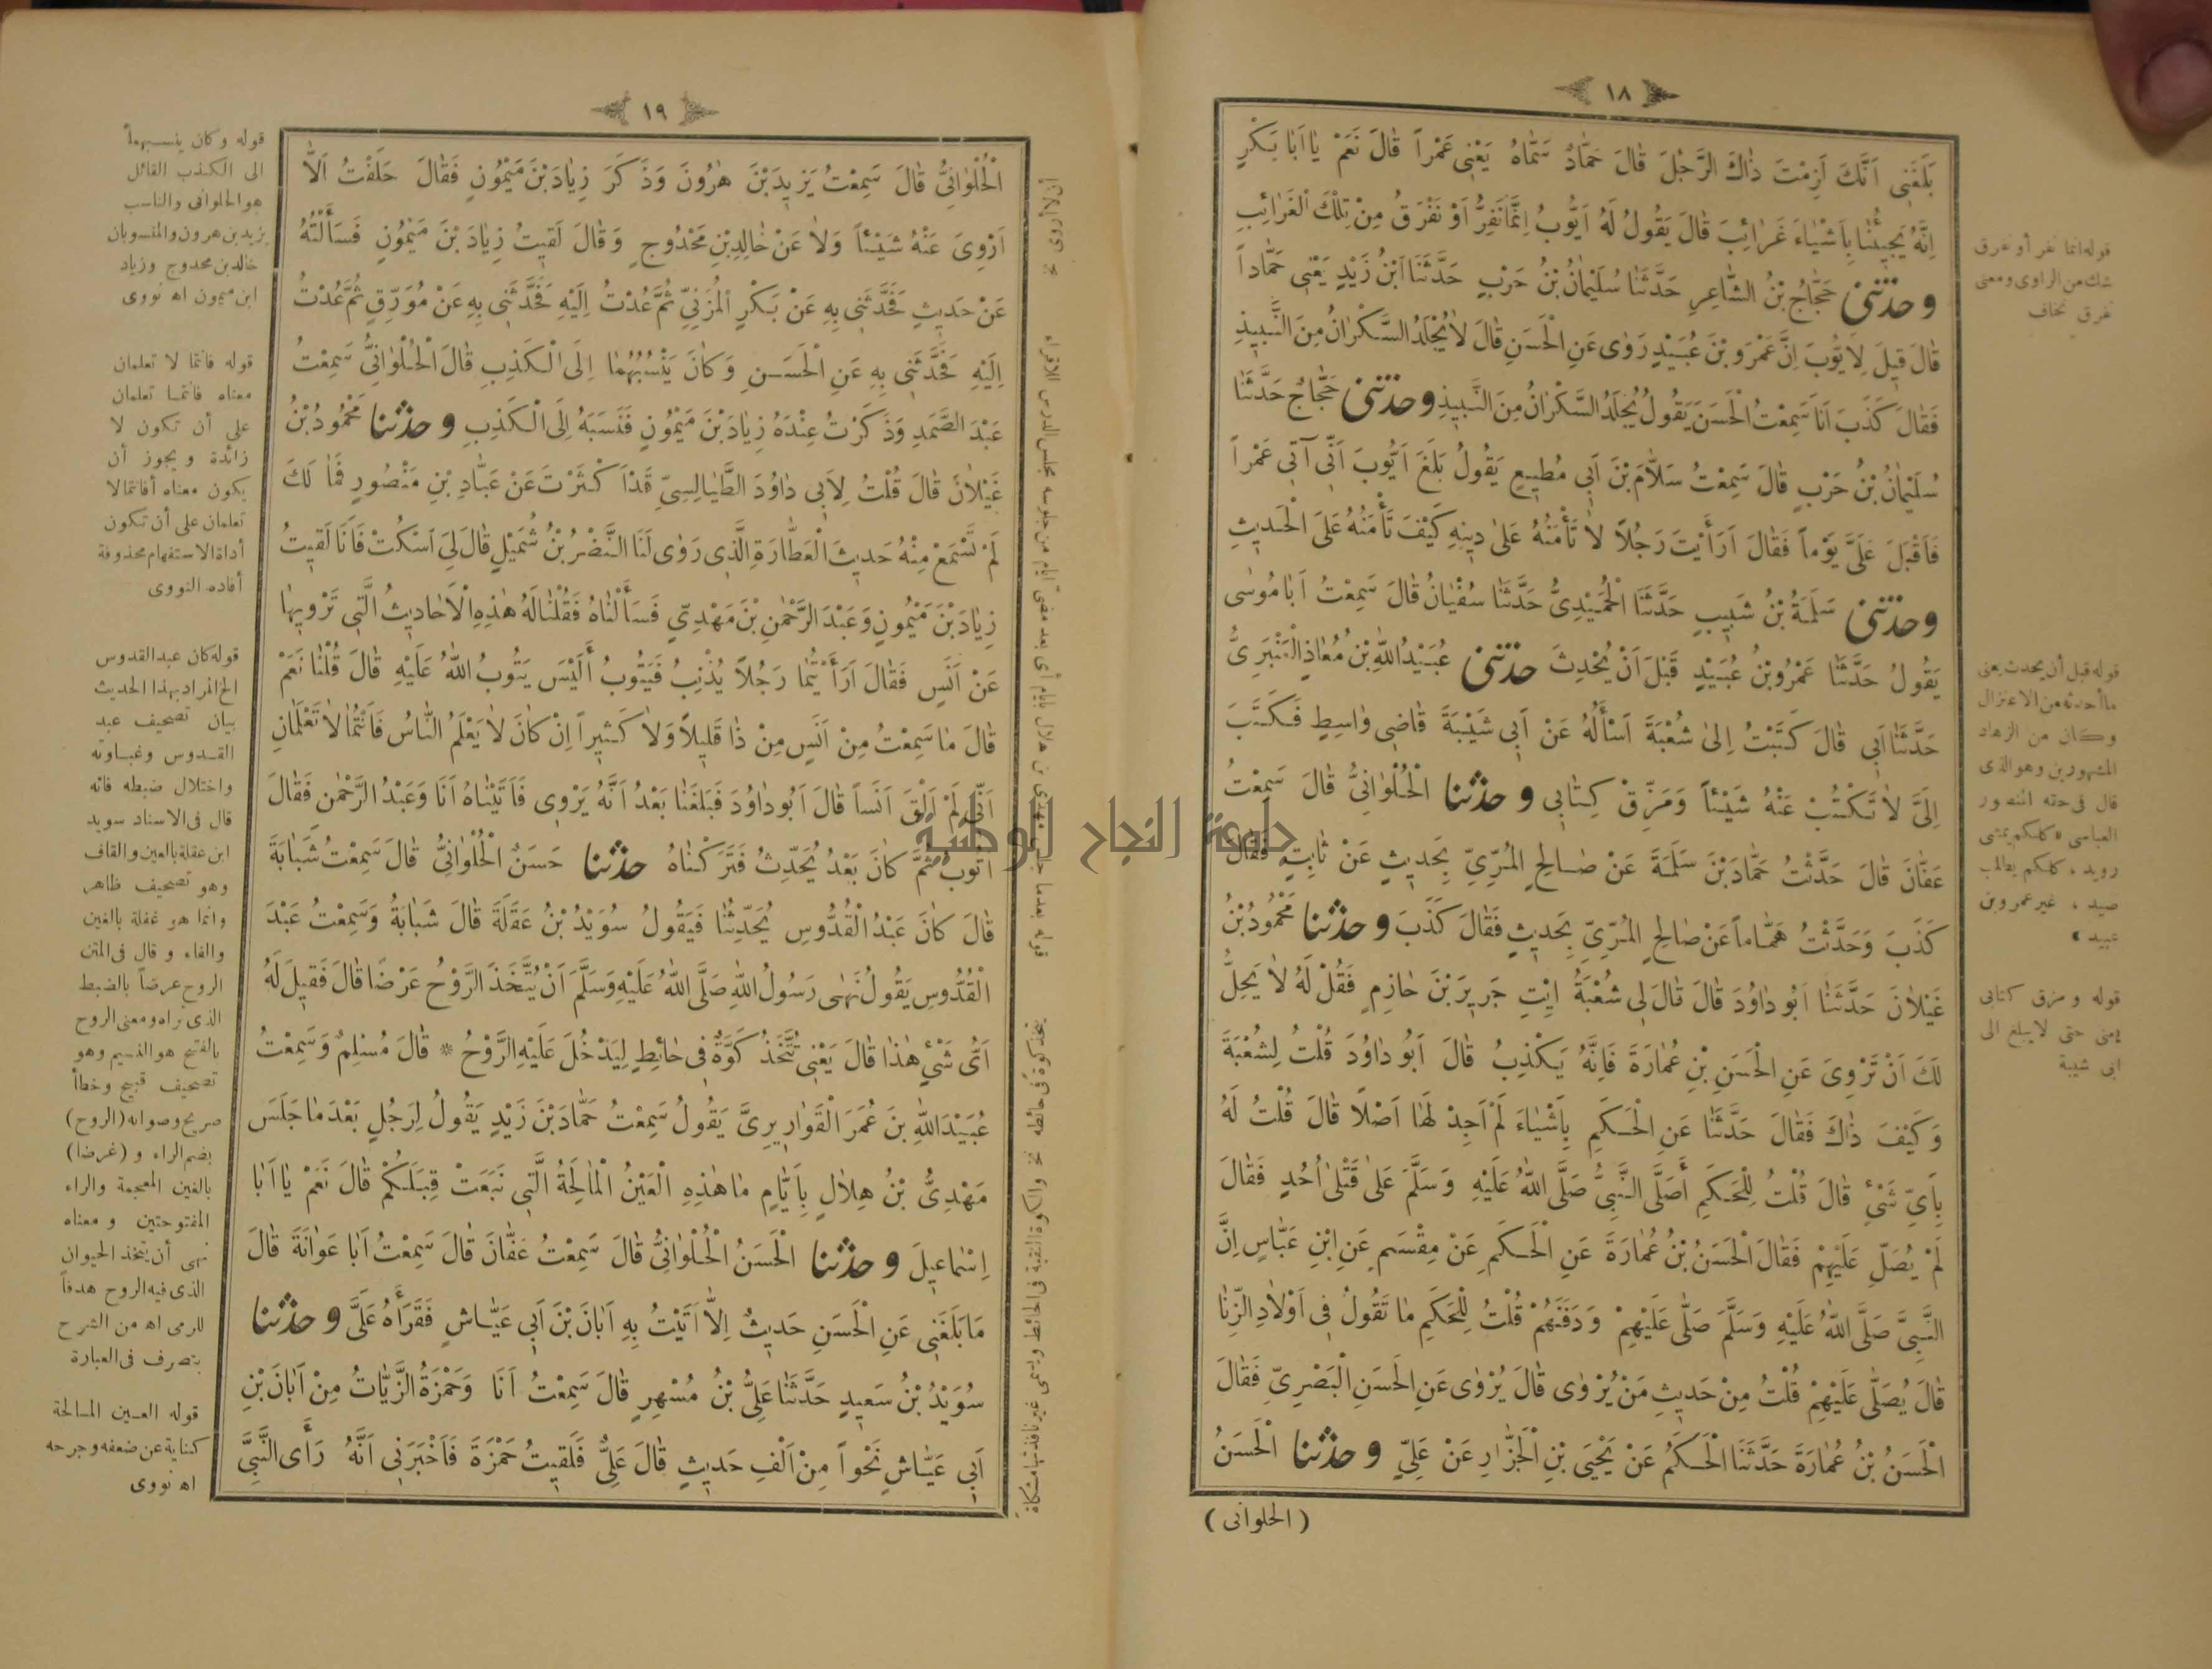 ١٨
بَلَغَنِى اَنَّكَ لَزِمْتَ ذَاكَ الرَّجُلَ قَالَ حَمَّادٌ سَمَّاهُ يَعْنِى عَمْراً قَالَ نَعَمْ يَا اَبَا بَكْرٍ
اِنَّهُ يَجِيئُنَا بِاَشْيَاءَ غَرَائِبَ قَالَ يَقُولُ لَهُ اَيُّوبُ اِنَّمَا نَفِرُّ اَوْ نَفْرَقُ مِنْ تِلْكَ الْغَرَائِبِ
وحدثنى حَجَّاجُ بْنُ الشَّاعِرِ حَدَّثَنَا سُلَيْمَانُ بْنُ حَرْبٍ حَدَّثَنَا ابْنُ زَيْدٍ يَعْنِى حَمَّاداً
قَالَ قِيلَ لِاَيُّوبَ اِنَّ عَمْرَو بْنَ عُبَيْدٍ رَوٰى عَنِ الْحَسَنِ قَالَ لَا يُجْلَدُ السَّكْرَانُ مِنَ النَّبِيذِ
فَقَالَ كَذَبَ اَنَا سَمِعْتُ الْحَسَنَ يَقُولُ يُجْلَدُ السَّكْرَانُ مِنَ النَّبِيذِ وحدثنى حَجَّاجٌ حَدَّثَنَا
سُلَيْمَانُ بْنُ حَرْبٍ قَالَ سَمِعْتُ سَلَّامَ بْنَ اَبِى مُطِيعٍ يَقُولُ بَلَغَ اَيُّوبَ اَنِّى آتِى عَمْراً
فَاَقْبَلَ عَلَىَّ يَوْماً فَقَالَ اَرَأَيْتَ رَجُلاً لَا تَأْمَنُهُ عَلَى دِينِهِ كَيْفَ تَأْمَنُهُ عَلَى الْحَدِيثِ
وحدثنى سَلَمَةُ بْنُ شَبِيبٍ حَدَّثَنَا الْحُمَيْدِىُّ حَدَّثَنَا سُفْيَانُ قَالَ سَمِعْتُ اَبَا مُوسٰى
يَقُولُ حَدَّثَنَا عَمْرُو بْنُ عُبَيْدٍ قَبْلَ اَنْ يُحْدِثَ حدثنى عُبَيْدُ اللهِ بْنُ مُعَاذٍ الْعَنْبَرِىُّ
حَدَّثَنَا اَبِى قَالَ كَتَبْتُ اِلَى شُعْبَةَ اَسْأَلُهُ عَنْ اَبِى شَيْبَةَ قَاضِى وَاسِطٍ فَكَتَبَ
اِلَىَّ لَا تَكْتُبْ عَنْهُ شَيْئاً وَمَزِّقْ كِتَابِى وحدثنا الْحُلْوَانِىُّ قَالَ سَمِعْتُ
عَفَّانَ قَالَ حَدَّثْتُ حَمَّادَ بْنَ سَلَمَةَ عَنْ صَالِحٍ الْمُرِّىِّ بِحَدِيثٍ عَنْ ثَابِتٍ فَقَالَ
كَذَبَ وَحَدَّثْتُ هَمَّاماً عَنْ صَالِحٍ الْمُرِّىِّ بِحَدِيثٍ فَقَالَ كَذَبَ وحدثنا مَحْمُودُ بْنُ
غَيْلَانَ حَدَّثَنَا اَبُو دَاوُدَ قَالَ قَالَ لِى شُعْبَةُ اِيْتِ جَرِيرَ بْنَ حَازِمٍ فَقُلْ لَهُ لَا يَحِلُّ
لَكَ اَنْ تَرْوِىَ عَنِ الْحَسَنِ بْنِ عُمَارَةَ فَاِنَّهُ يَكْذِبُ قَالَ اَبُو دَاوُدَ قُلْتُ لِشُعْبَةَ
وَكَيْفَ ذَاكَ فَقَالَ حَدَّثَنَا عَنِ الْحَكَمِ بِاَشْيَاءَ لَمْ اَجِدْ لَهَا اَصْلاً قَالَ قُلْتُ لَهُ
بِاَىِّ شَىْءٍ قَالَ قُلْتُ لِلْحَكَمِ أَصَلَّى النَّبِىُّ صَلَّى اللهُ عَلَيْهِ وَسَلَّمَ عَلَى قَتْلٰى اُحُدٍ فَقَالَ
لَمْ يُصَلِّ عَلَيْهِمْ فَقَالَ الْحَسَنُ بْنُ عُمَارَةَ عَنِ الْحَكَمِ عَنْ مِقْسَمٍ عَنِ ابْنِ عَبَّاسٍ اِنَّ
النَّبِىَّ صَلَّى اللهُ عَلَيْهِ وَسَلَّمَ صَلَّى عَلَيْهِمْ وَدَفَنَهُمْ قُلْتُ لِلْحَكَمِ مَا تَقُولُ فِى اَوْلَادِ الزِّنَا
قَالَ يُصَلَّى عَلَيْهِمْ قُلْتُ مِنْ حَدِيثِ مَنْ يُرْوٰى قَالَ يُرْوٰى عَنِ الْحَسَنِ الْبَصْرِىِّ فَقَالَ
الْحَسَنُ بْنُ عُمَارَةَ حَدَّثَنَا الْحَكَمُ عَنْ يَحْيَى بْنِ الْجَزَّارِ عَنْ عَلِىٍّ وحدثنا الْحَسَنُ
( الحلوانى )
قوله انما نفر أو نفرق
شك من الراوى ومعنى
نفرق نخاف
قوله قبل أن يحدث يعنى
ما أحدثه من الاعتزال
وكان من الزهاد
المشهورين وهو الذى
قال فى حقه المنصور
العباسى «كلكم يمشى
رويد ، كلكم يطلب
صيد ، غير عمرو بن
عبيد»
قوله ومزق كتابى
يعنى حتى لا يبلغ الى
ابى شيبة
١٩
الْحُلْوَانِىُّ قَالَ سَمِعْتُ يَزِيدَ بْنَ هٰرُونَ وَذَكَرَ زِيَادَ بْنَ مَيْمُونٍ فَقَالَ حَلَفْتُ اَلَّا
اَرْوِىَ عَنْهُ شَيْئاً وَلَا عَنْ خَالِدِ بْنِ مَحْدُوجٍ وَقَالَ لَقِيتُ زِيَادَ بْنَ مَيْمُونٍ فَسَأَلْتُهُ
عَنْ حَدِيثٍ فَحَدَّثَنِى بِهِ عَنْ بَكْرٍ الْمُزَنِىِّ ثُمَّ عُدْتُ اِلَيْهِ فَحَدَّثَنِى بِهِ عَنْ مُوَرِّقٍ ثُمَّ عُدْتُ
اِلَيْهِ فَحَدَّثَنِى بِهِ عَنِ الْحَسَنِ وَكَانَ يَنْسُبُهُمَا اِلَى الْكَذِبِ قَالَ الْحُلْوَانِىُّ سَمِعْتُ
عَبْدَ الصَّمَدِ وَذَكَرْتُ عِنْدَهُ زِيَادَ بْنَ مَيْمُونٍ فَنَسَبَهُ اِلَى الْكَذِبِ وحدثنا مَحْمُودُ بْنُ
غَيْلَانَ قَالَ قُلْتُ لِاَبِى دَاوُدَ الطَّيَالِسِىِّ قَدْ اَكْثَرْتَ عَنْ عَبَّادِ بْنِ مَنْصُورٍ فَمَا لَكَ
لَمْ تَسْمَعْ مِنْهُ حَدِيثَ الْعَطَّارَةِ الَّذِى رَوٰى لَنَا النَّضْرُ بْنُ شُمَيْلٍ قَالَ لِىَ اسْكُتْ فَاَنَا لَقِيتُ
زِيَادَ بْنَ مَيْمُونٍ وَعَبْدَ الرَّحْمٰنِ بْنَ مَهْدِىٍّ فَسَأَلْنَاهُ فَقُلْنَا لَهُ هٰذِهِ الْاَحَادِيثُ الَّتِى تَرْوِيهَا
عَنْ اَنَسٍ فَقَالَ اَرَأَيْتُمَا رَجُلاً يُذْنِبُ فَيَتُوبُ أَلَيْسَ يَتُوبُ اللهُ عَلَيْهِ قَالَ قُلْنَا نَعَمْ
قَالَ مَا سَمِعْتُ مِنْ اَنَسٍ مِنْ ذَا قَلِيلاً وَلَا كَثِيراً اِنْ كَانَ لَا يَعْلَمُ النَّاسُ فَاَنْتُمَا لَا تَعْلَمَانِ
اَنِّى لَمْ اَلْقَ اَنَساً قَالَ اَبُو دَاوُدَ فَبَلَغَنَا بَعْدُ اَنَّهُ يَرْوِى فَاَتَيْنَاهُ اَنَا وَعَبْدُ الرَّحْمٰنِ فَقَالَ
اَتُوبُ ثُمَّ كَانَ بَعْدُ يُحَدِّثُ فَتَرَكْنَاهُ حدثنا حَسَنٌ الْحُلْوَانِىُّ قَالَ سَمِعْتُ شَبَابَةَ
قَالَ كَانَ عَبْدُ الْقُدُّوسِ يُحَدِّثُنَا فَيَقُولُ سُوَيْدُ بْنُ عَقَلَةَ قَالَ شَبَابَةُ وَسَمِعْتُ عَبْدَ
الْقُدُّوسِ يَقُولُ نَهٰى رَسُولُ اللهِ صَلَّى اللهُ عَلَيْهِ وَسَلَّمَ اَنْ يُتَّخَذَ الرَّوْحُ عَرْضًا قَالَ فَقِيلَ لَهُ
اَىُّ شَىْءٍ هٰذَا قَالَ يَعْنِى تُتَّخَذُ كَوَّةٌ فِى حَائِطٍ لِيَدْخُلَ عَلَيْهِ الرَّوْحُ * قَالَ مُسْلِمٌ وَسَمِعْتُ
عُبَيْدَ اللهِ بْنَ عُمَرَ الْقَوَارِيرِىَّ يَقُولُ سَمِعْتُ حَمَّادَ بْنَ زَيْدٍ يَقُولُ لِرَجُلٍ بَعْدَ مَا جَلَسَ
مَهْدِىُّ بْنُ هِلَالٍ بِاَيَّامٍ مَا هٰذِهِ الْعَيْنُ الْمَالِحَةُ الَّتِى نَبَعَتْ قِبَلَكُمْ قَالَ نَعَمْ يَا اَبَا
اِسْمَاعِيلَ وحدثنا الْحَسَنُ الْحُلْوَانِىُّ قَالَ سَمِعْتُ عَفَّانَ قَالَ سَمِعْتُ اَبَا عَوَانَةَ قَالَ
مَا بَلَغَنِى عَنِ الْحَسَنِ حَدِيثٌ اِلَّا اَتَيْتُ بِهِ اَبَانَ بْنَ اَبِى عَيَّاشٍ فَقَرَأَهُ عَلَىَّ وحدثنا
سُوَيْدُ بْنُ سَعِيدٍ حَدَّثَنَا عَلِىُّ بْنُ مُسْهِرٍ قَالَ سَمِعْتُ اَنَا وَحَمْزَةُ الزَّيَّاتُ مِنْ اَبَانَ بْنِ
اَبِى عَيَّاشٍ نَحْواً مِنْ اَلْفِ حَدِيثٍ قَالَ عَلِىٌّ فَلَقِيتُ حَمْزَةَ فَاَخْبَرَنِى اَنَّهُ رَأَى النَّبِىَّ
قوله وكان ينسبهما
الى الكذب القائل
هو الحلوانى والناسب
يزيد بن هرون والمنسوبان
خالد بن محدوج وزياد
ابن ميمون اه نووى
قوله فانتما لا تعلمان
معناه فانتما تعلمان
على أن تكون لا
زائدة ويجوز أن
يكون معناه أفانتما لا
تعلمان على أن تكون
أداة الاستفهام محذوفة
أفاده النووى
قوله كان عبد القدوس
الخ المراد بهذا الحديث
بيان تصحيف عبد
القدوس وغباوته
واختلال ضبطه فانه
قال فى الاسناد سويد
ابن عقلة بالعين والقاف
وهو تصحيف ظاهر
وانما هو غفلة بالغين
والفاء وقال فى المتن
الروح عرضاً بالضبط
الذى تراه ومعنى الروح
بالفتح هو النسيم وهو
تصحيف قبيح وخطأ
صريح وصوابه (الروح)
بضم الراء و (غرضا)
بالغين المعجمة والراء
المفتوحتين ومعناه
نهى أن يتخذ الحيوان
الذى فيه الروح هدفاً
للرمى اه من الشرح
بتصرف فى العبارة
قوله العين المالحة
كناية عن ضعفه وجرحه
اه نووى
قوله بعدما جلس مهدى بن هلال بايام أى بعد مضى ايام من جلوسه مجلس الدرس للاقراء
جامعة النجاح الوطنية